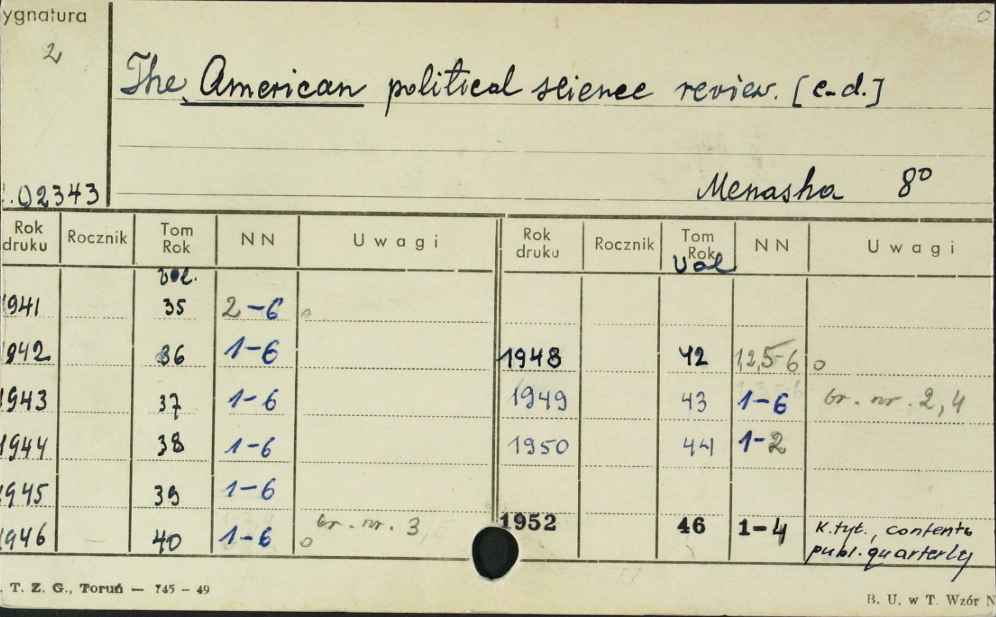 ygnatura
2
The American political science review. [c-d.]
.02343
Menasha 8°
Rok druku Rocznik Tom Rok NN Uwagi Rok druku Rocznik Tom Rok NN Uwagi
vol. vol
1941 35 2-6 o
1942 36 1-6 1948 42 1,2,5-6 o
1943 37 1-6 1949 43 1-6 br. nr. 2,4
1944 38 1-6 1950 44 1-2
1945 39 1-6
1946 40 1-6 br. nr. 3, o 1952 46 1-4 K.tyt., contents
publ. quarterly
. T. Z. G., Toruń — 745 – 49
B. U. w T. Wzór N